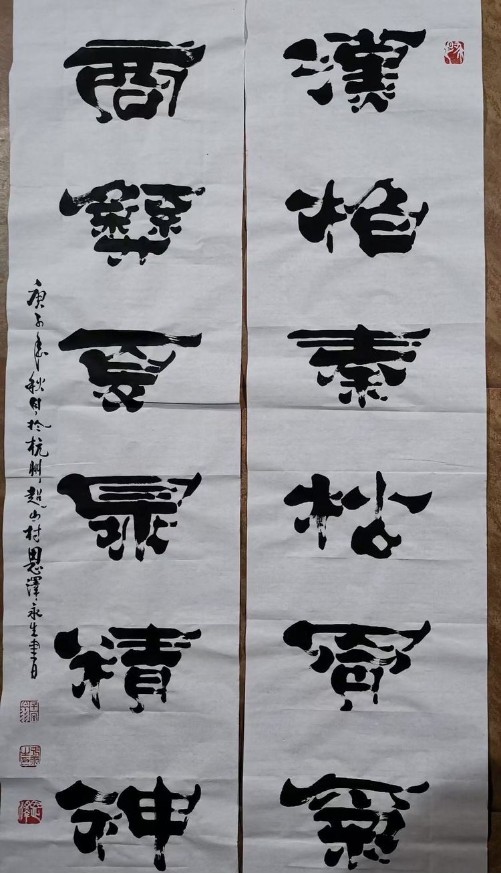 漢柏秦松骨氣
商彝夏鼎精神
庚子年秋於杭州超山村恩澤永生書